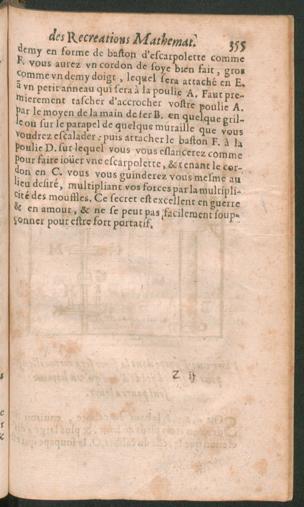 des Recreations Mathemat. 355
demy en forme de baston d'escarpolette comme
F. vous aurez vn cordon de soye bien fait, gros
comme vn demy doigt, lequel sera attaché en E.
à vn petit anneau qui sera à la poulie A. Faut pre-
mierement tascher d'accrocher vostre poulie A.
par le moyen de la main de fer B. en quelque gril-
le ou sur le parapel de quelque muraille que vous
voudrez escalader; puis attacher le baston F. à la
poulie D. sur lequel vous vous eslancerez comme
pour faire ioüer vne escarpolette, & tenant le cor-
don en C. vous vous guinderez vous mesme au
lieu desiré, multipliant vos forces par la multipli-
cité des mouffles. Ce secret est excellent en guerre
& en amour, & ne se peut pas facilement soup-
çonner pour estre fort portatif.
Z ij